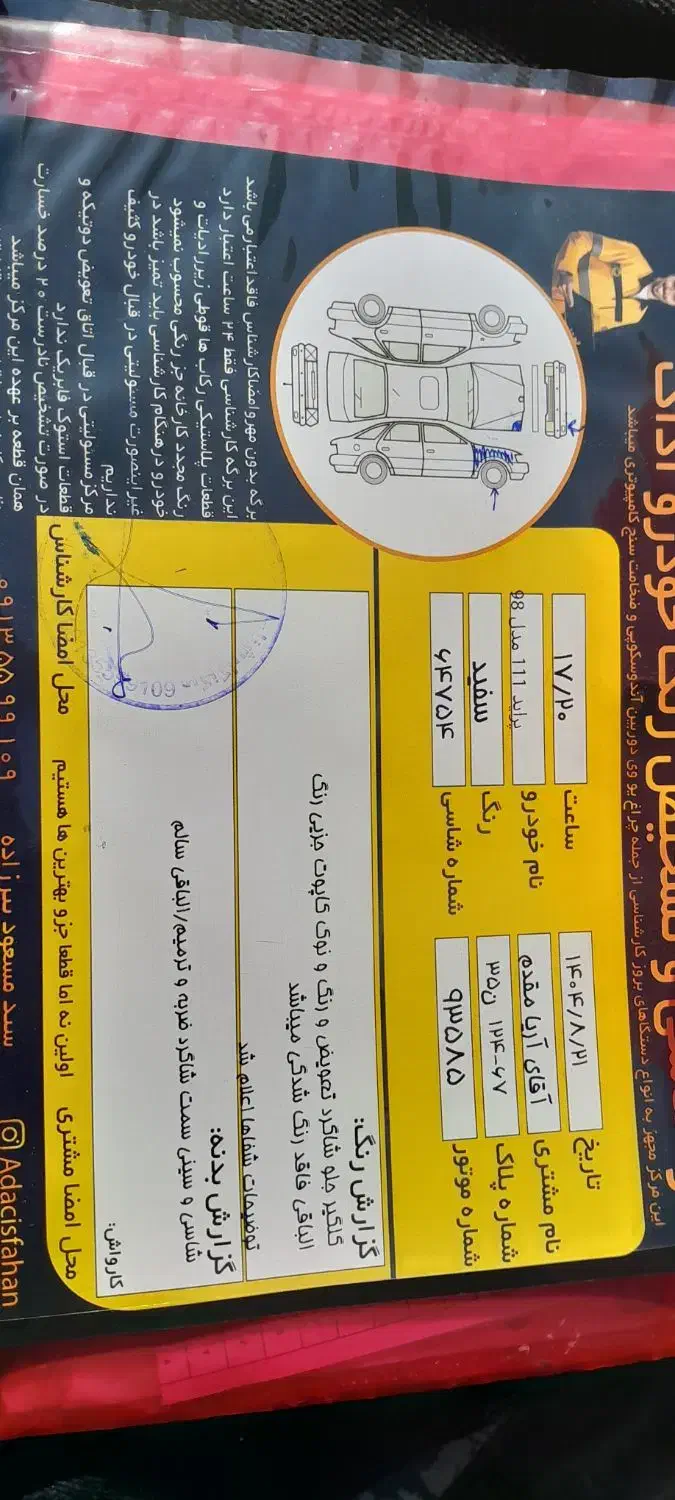 و تشخیص رنگ خودرو آداک
این مرکز مجهز به انواع دستگاهای بروز کارشناسی از جمله چراغ یو وی دوربین آندوسکوپی و ضخامت سنج کامپیوتری میباشد
تاریخ ۱۴۰۴/۸/۲۱ ساعت ۱۷/۲۰
نام مشتری آقای آریا مقدم نام خودرو پراید 111 مدل 98
شماره پلاک رنگ سفید
شماره موتور ۹۳۵۸۵ شماره شاسی ۶۴۷۵۴
گزارش رنگ:
گلگیر جلو شاگرد تعویض و رنگ و نوک کاپوت جزیی رنگ
الباقی فاقد رنگ شدگی میباشد
توضیحات شفاها اعلام شد
گزارش بدنه:
شاسی و سینی سمت شاگرد ضربه و ترمیم/الباقی سالم
کارواش:
برگه بدون مهر وامضاکارشناس فاقد اعتبار می باشد
این برگه کارشناسی فقط ۲۴ ساعت اعتبار دارد
قطعات پلاستیکی رکاب ها قوطی زیر رادیات و
رنگ مجدد کارخانه جز رنگی محسوب نمیشود
خودرو درهنگام کارشناسی باید تمیز باشد در
غیر اینصورت مسولیتی در قبال خودرو کثیف
نداریم
مرکز مسئولیتی در قبال اتاق تعویض دوتیکه و
قطعات استوک فابریک ندارد
در صورت تشخیص نادرست ۲۰ درصد خسارت
همان قطعه بر عهده این مرکز میباشد
محل امضا مشتری اولین نه اما قطعا جزو بهترین ها هستیم محل امضا کارشناس
Adacisfahan